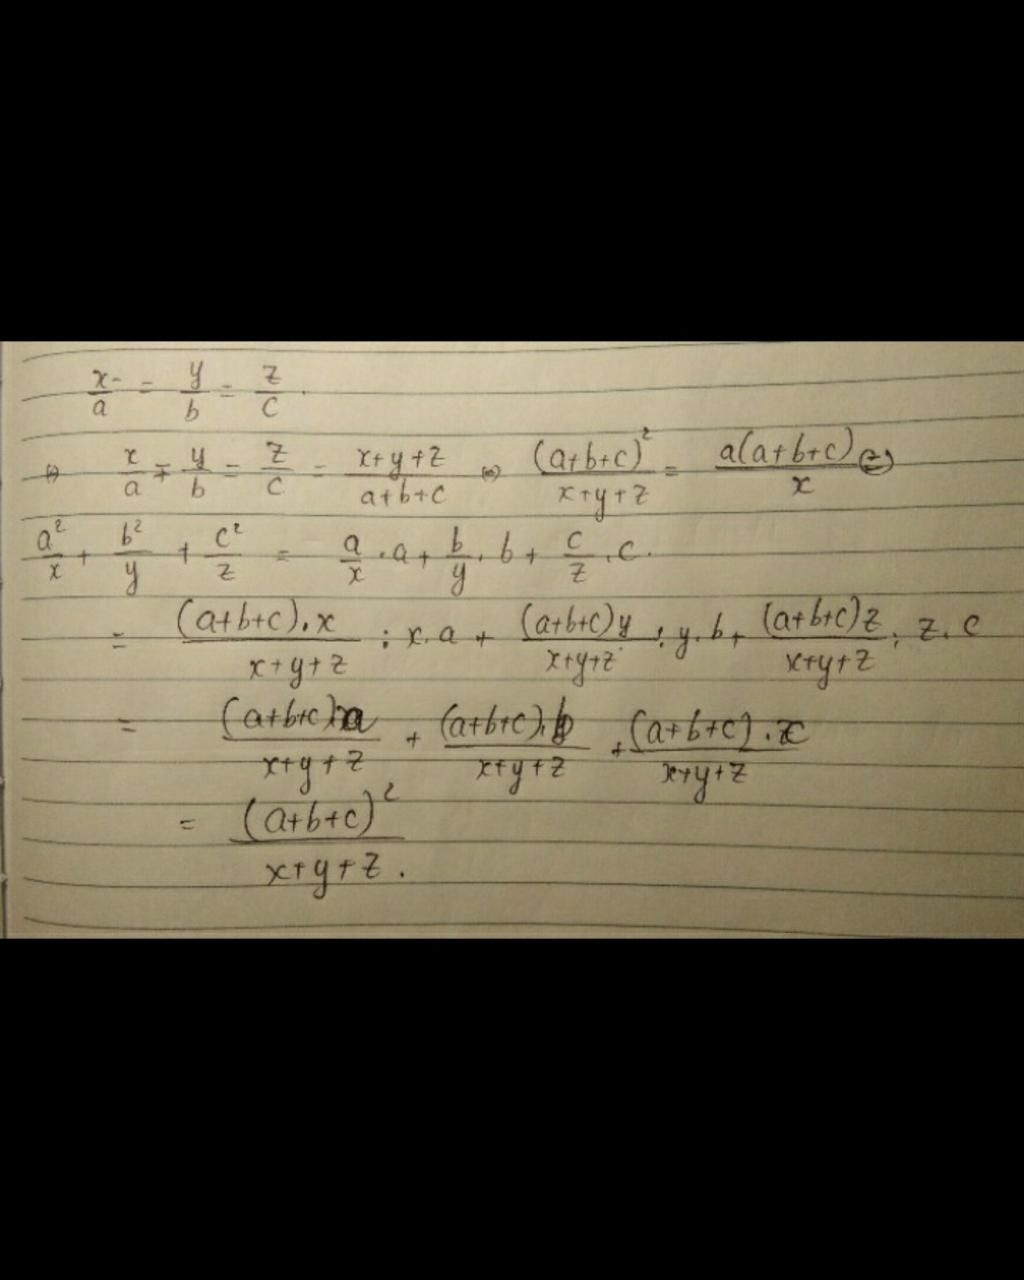 x/a = y/b = z/c.
⇔ x/a = y/b = z/c = (x+y+z)/(a+b+c) ⇔ (a+b+c)²/(x+y+z) = a(a+b+c)/x
a²/x + b²/y + c²/z = a/x . a + b/y . b + c/z . c.
= (a+b+c).x/(x+y+z) : x.a + (a+b+c)y/(x+y+z) : y.b + (a+b+c)z/(x+y+z) : z.c
= (a+b+c).a/(x+y+z) + (a+b+c).b/(x+y+z) + (a+b+c).c/(x+y+z)
= (a+b+c)²/(x+y+z).